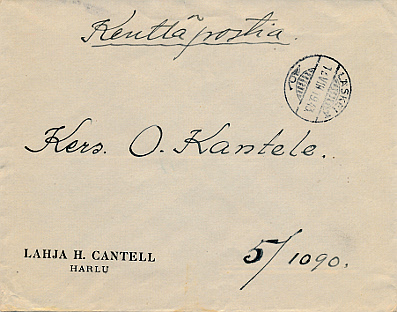 Kenttäpostia.
LÄSKELÄ
Kers. O. Kantele.
LAHJA H. CANTELL
HARLU
5/1090.